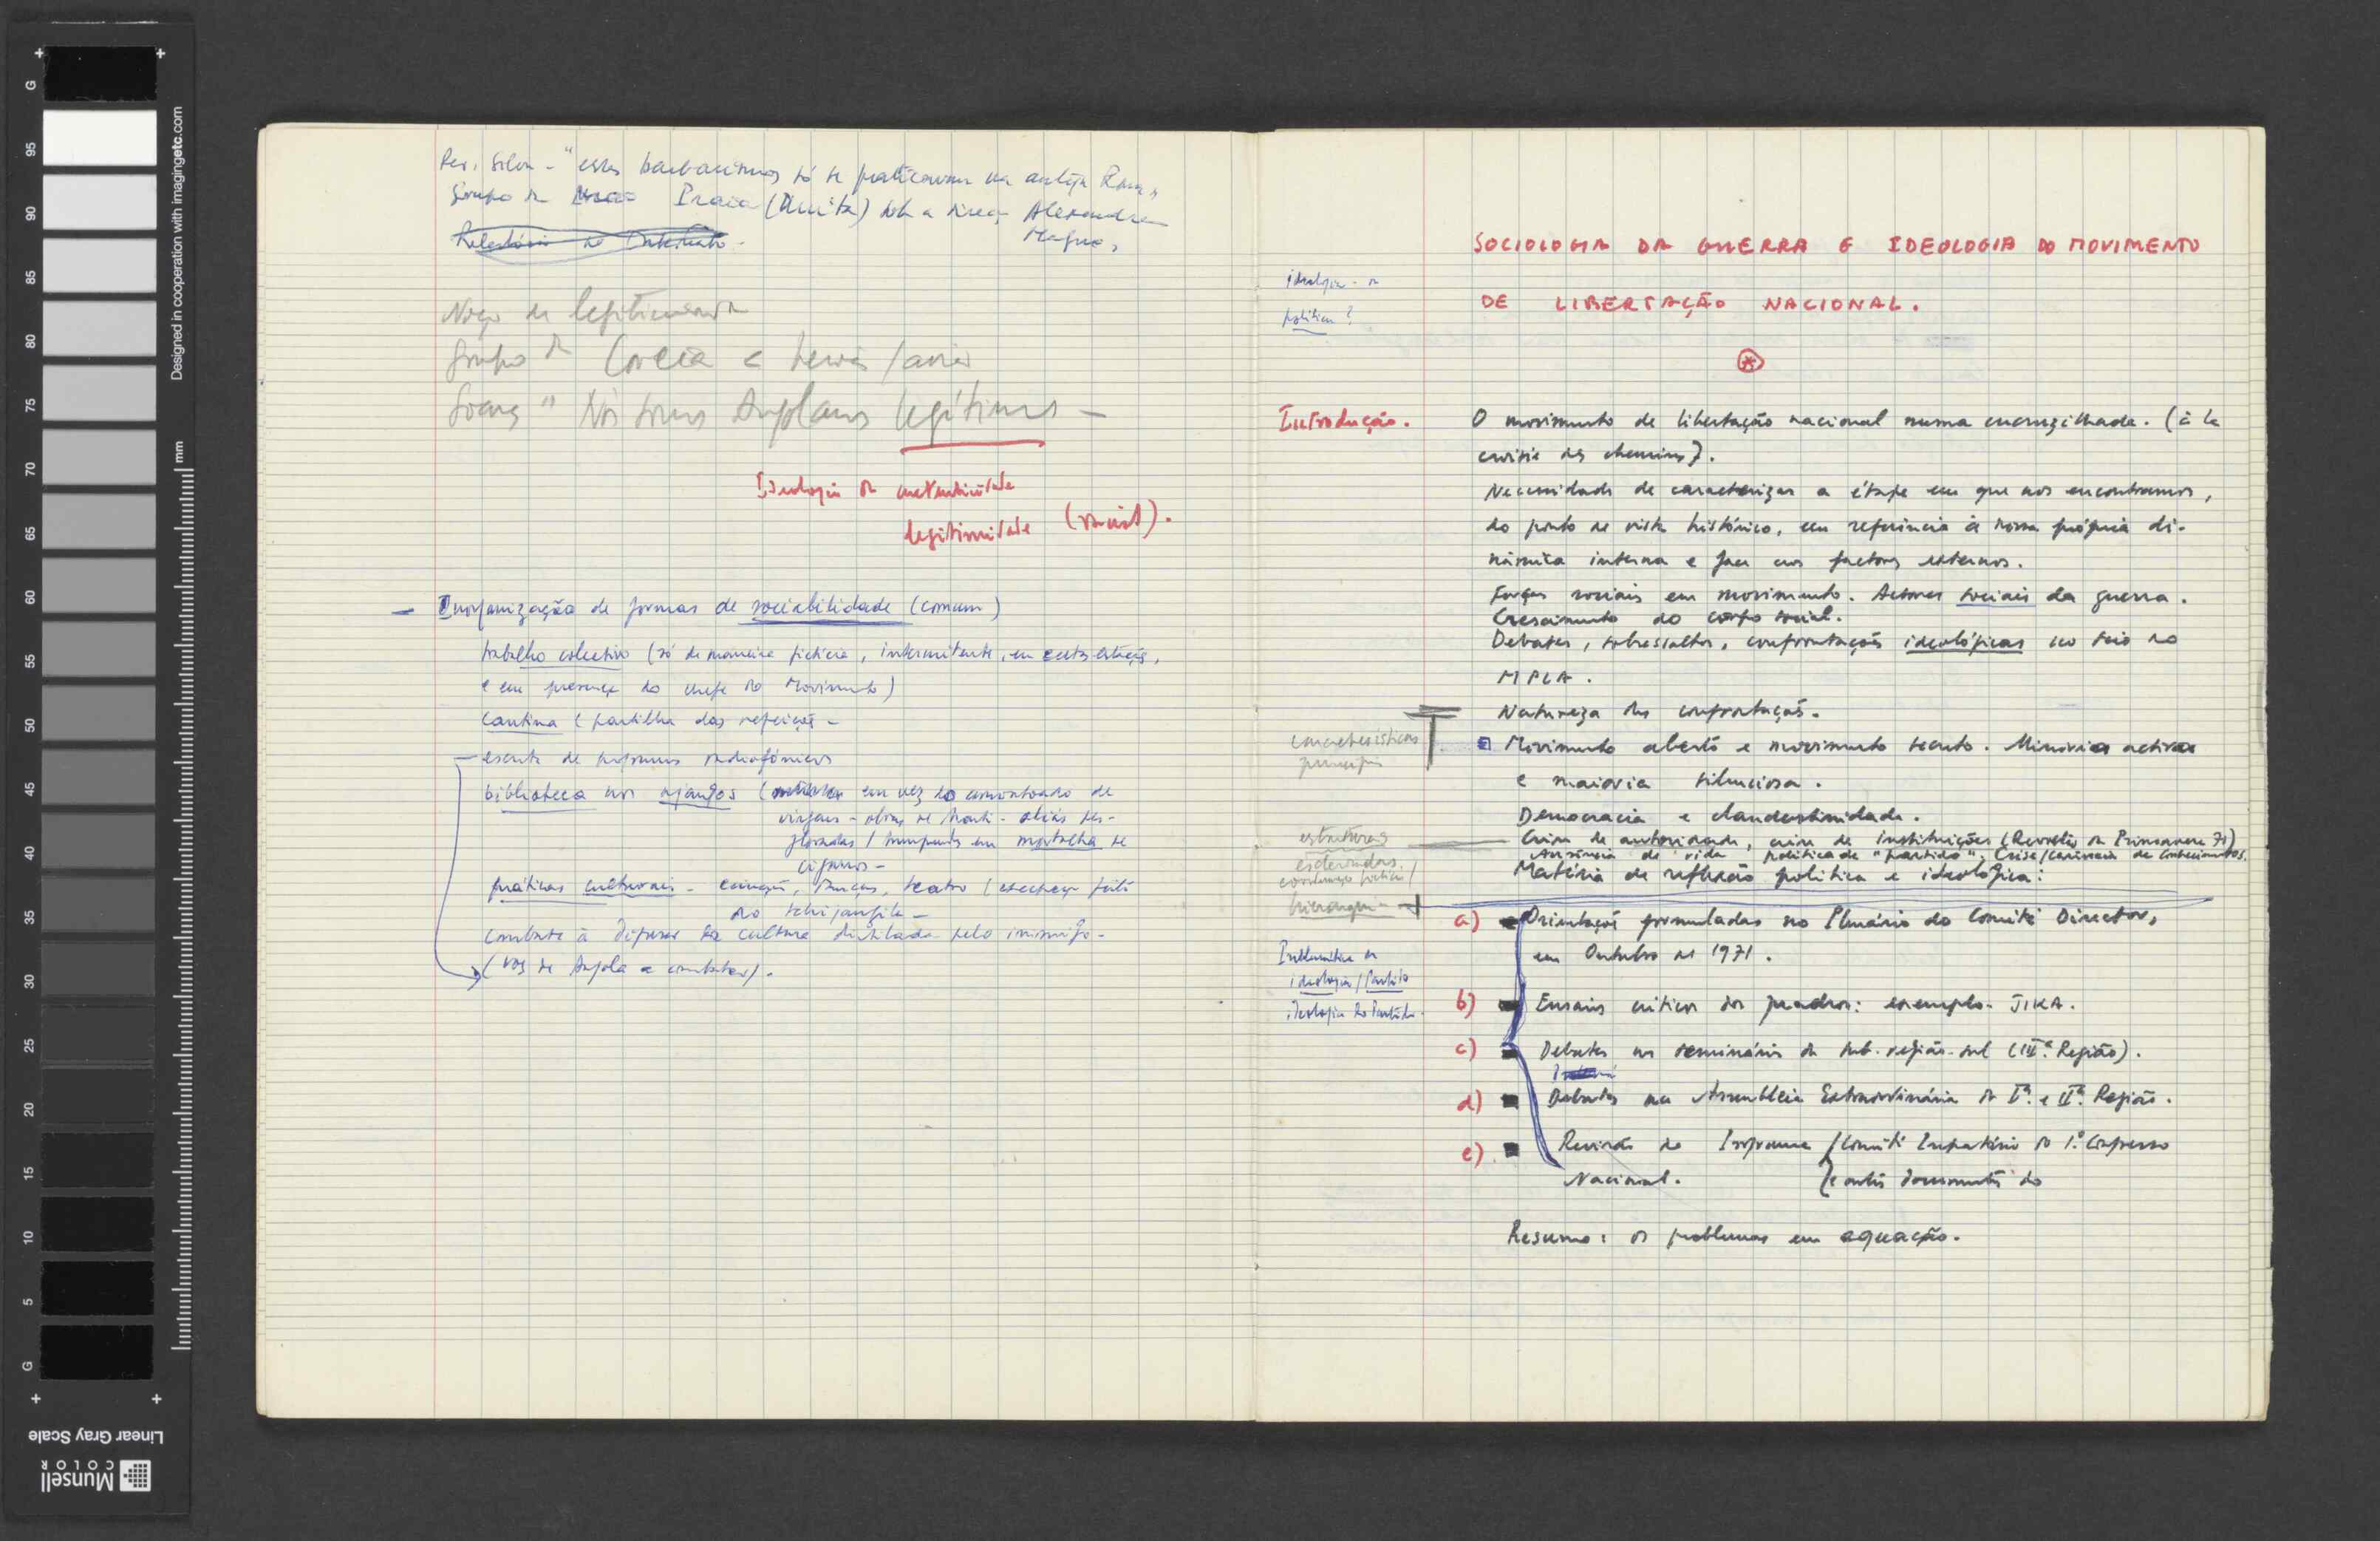 "estes barbarismos só se praticavam na antiga Roma"
Grupo de Praia (Unita) sob a direcç. Alexandre
Magno,
Relatório
Noção de legitimidade
Grupo de
"Nós somos Angolanos legítimos –
Ideologia da autenticidade
legitimidade
– Inorganização de formas de sociabilidade (comum)
trabalho colectivo (só de maneira fictícia, intermitente, em certas estações,
e em presença do chefe do Movimento)
Cantina (partilha das refeições –
– escuta de programas radiofónicos
biblioteca nos njangos ( em vez do amontoado de
obras de - aliás des-
em mortalha de
cigarros –
práticas culturais – canções, danças, teatro (excepção feita
do
combate à difusão da cultura destilada pelo inimigo –
(Voz de Angola a combater).
SOCIOLOGIA DA GUERRA E IDEOLOGIA DO MOVIMENTO
DE LIBERTAÇÃO NACIONAL.
ideologia – ou
política?
Introdução.
O movimento de libertação nacional numa encruzilhada. (à la
croisée des chemins).
Necessidade de caracterizar a étape em que nos encontramos,
do ponto de vista histórico, em referência à nossa própria di-
nâmica interna e face aos factores externos.
Forças sociais em movimento. Actores sociais da guerra.
Crescimento do corpo social.
Debates, sobressaltos, confrontações ideológicas no seio do
MPLA.
Natureza das confrontações.
características
principais
Movimento aberto e movimento secreto. Minoria activa
e maioria silenciosa.
Democracia e clandestinidade.
estruturas
esclerosadas,
hierarquia –
Crise de autoridade, crise de instituições (Revolta da Primavera 71)
Ausência de vida política de "partido". Crise/carência de conhecimentos.
Matéria de reflexão política e ideológica:
a) Orientações formuladas no Plenário do Comité Director,
em Outubro de 1971.
Problemática da
ideologia/Partido
ideologia do Partido.
b) Ensaios críticos dos quadros: exemplo. JIKA.
c) Debates nos seminários da sub-região-sul (IIIª Região).
d) Debates na Assembleia Extraordinária da Iª. e IIª. Região.
e) Revisão do Programa /Comité Preparatório do 1º. Congresso
Nacional. (e outros documentos do
Resumo: os problemas em equação.
Designed in cooperation with imagingetc.com
mm
G 95 90 85 80 75 70 65 60 55 50 45 40 35 30 25 20 15 10 5 G
Linear Gray Scale
Munsell
COLOR